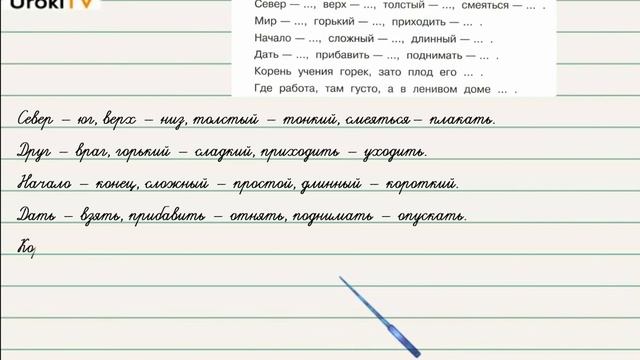 UrokiTV
Север — ..., верх — ..., толстый — ..., смеяться — ... .
Мир — ..., горький — ..., приходить — ... .
Начало — ..., сложный — ..., длинный — ... .
Дать — ..., прибавить — ..., поднимать — ... .
Корень учения горек, зато плод его ... .
Где работа, там густо, а в ленивом доме ... .
Север – юг, верх – низ, толстый – тонкий, смеяться – плакать.
Друг – враг, горький – сладкий, приходить – уходить.
Начало – конец, сложный – простой, длинный – короткий.
Дать – взять, прибавить – отнять, поднимать – опускать.
Ко